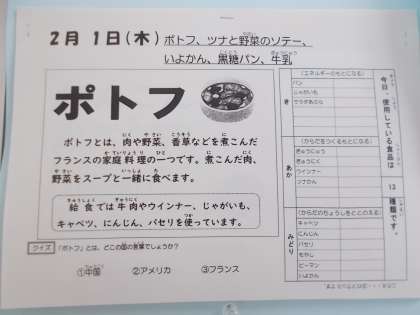 2月 1日(木) ポトフ、ツナと野菜のソテー、
いよかん、黒糖パン、牛乳
ポトフ
ポトフとは、肉や野菜、香草などを煮こんだ
フランスの家庭料理の一つです。煮こんだ肉、
野菜をスープと一緒に食べます。
給食では牛肉やウインナー、じゃがいも、
キャベツ、にんじん、パセリを使っています。
クイズ 「ポトフ」とは、どこの国の言葉でしょうか?
①中国 ②アメリカ ③フランス
今日、使用している食品は 13 種類です。
き
(エネルギーのもとになる)
パン
じゃがいも
サラダあぶら
あか
(からだをつくるもとになる)
ぎゅうにゅう
ぎゅうにく
ウインナー
ツナかん
みどり
(からだのちょうしをととのえる)
キャベツ
にんじん
パセリ
もやし
ピーマン
いよかん